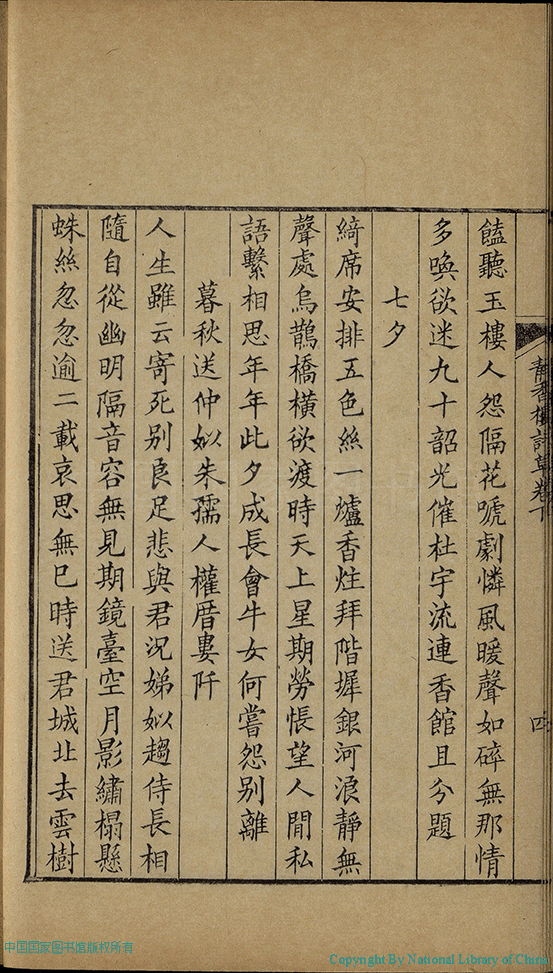 靜香樓詩草卷下
四
饁聽玉樓人怨隔花號劇憐風暖聲如碎無那情
多喚欲迷九十韶光催杜宇流連香館且分題
七夕
綺席安排五色絲一爐香炷拜階墀銀河浪靜無
聲處烏鵲橋橫欲渡時天上星期勞悵望人間私
語繫相思年年此夕成長會牛女何嘗怨別離
暮秋送仲姒朱孺人權厝婁阡
人生雖云寄死別良足悲與君況娣姒趨侍長相
隨自從幽明隔音容無見期鏡臺空月影繡榻懸
蛛絲忽忽逾二載哀思無已時送君城北去雲樹
中国国家图书馆版权所有
Copyright By National Library of China